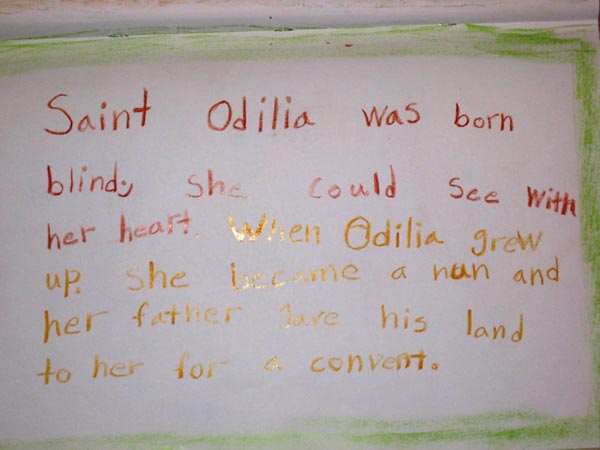 Saint Odilia was born
blind; she could see with
her heart. When Odilia grew
up, she became a nun and
her father gave his land
to her for a convent.